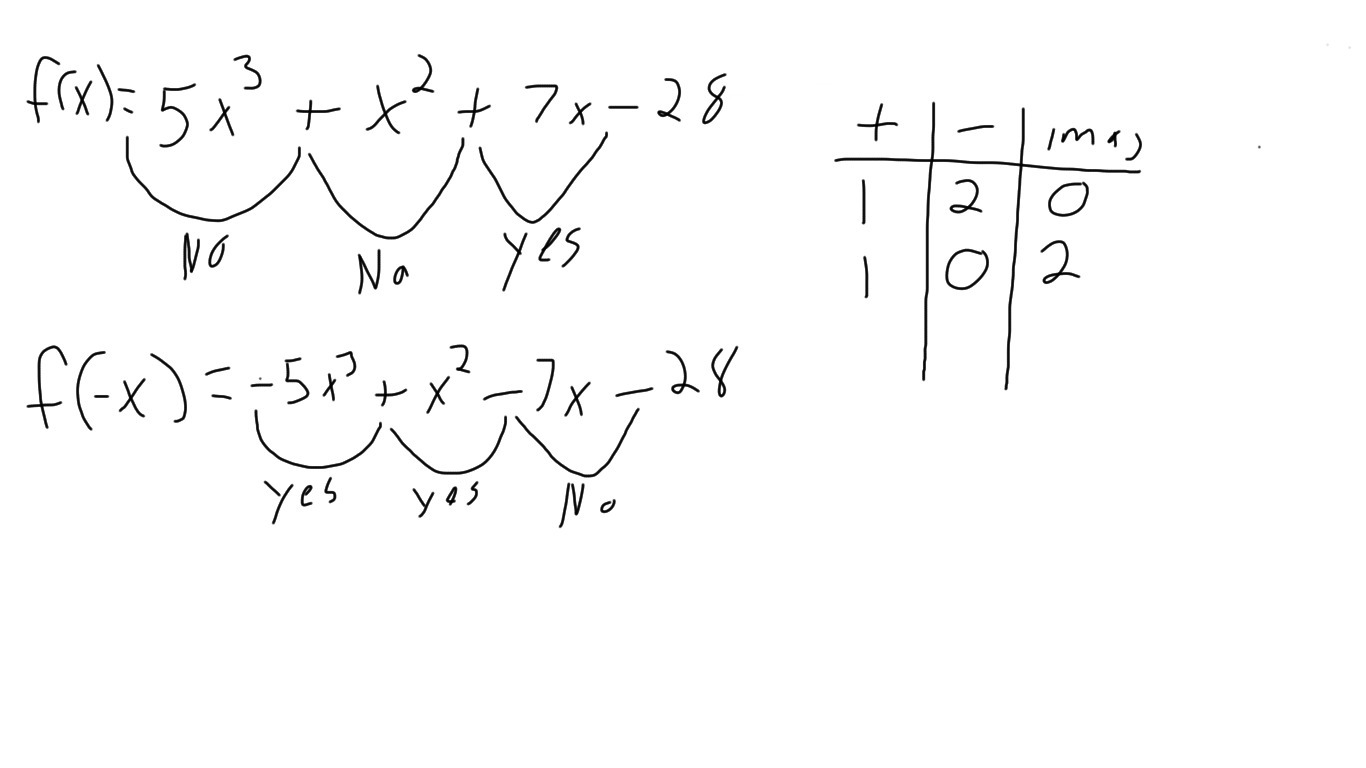 f(x) = 5x³ + x² + 7x - 28
No No yes
f(-x) = -5x³ + x² - 7x - 28
yes yes No
+ - imag
1 2 0
1 0 2